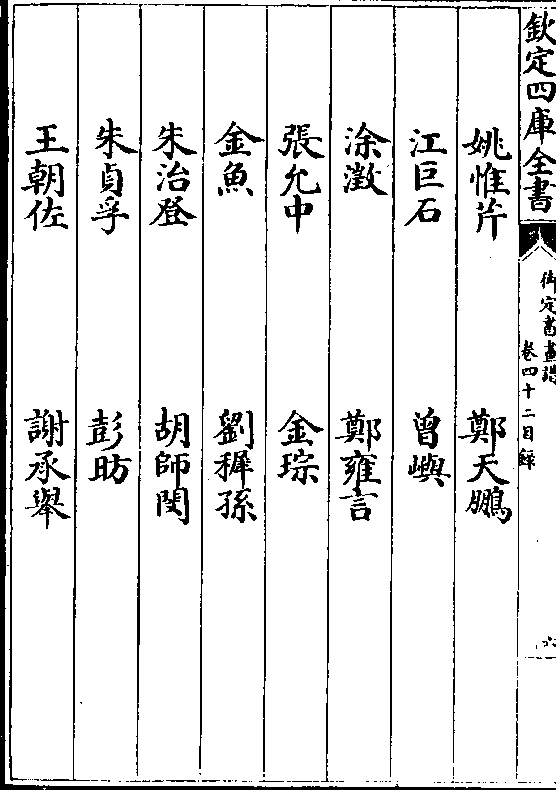 欽定四庫全書
御定書畫譜
卷四十二目錄
六
姚惟芹 鄭天鵬
江巨石 曾嶼
涂澂 鄭雍言
張允中 金琮
金魚 劉穉孫
朱治登 胡師閔
朱貞孚 彭昉
王朝佐 謝承舉